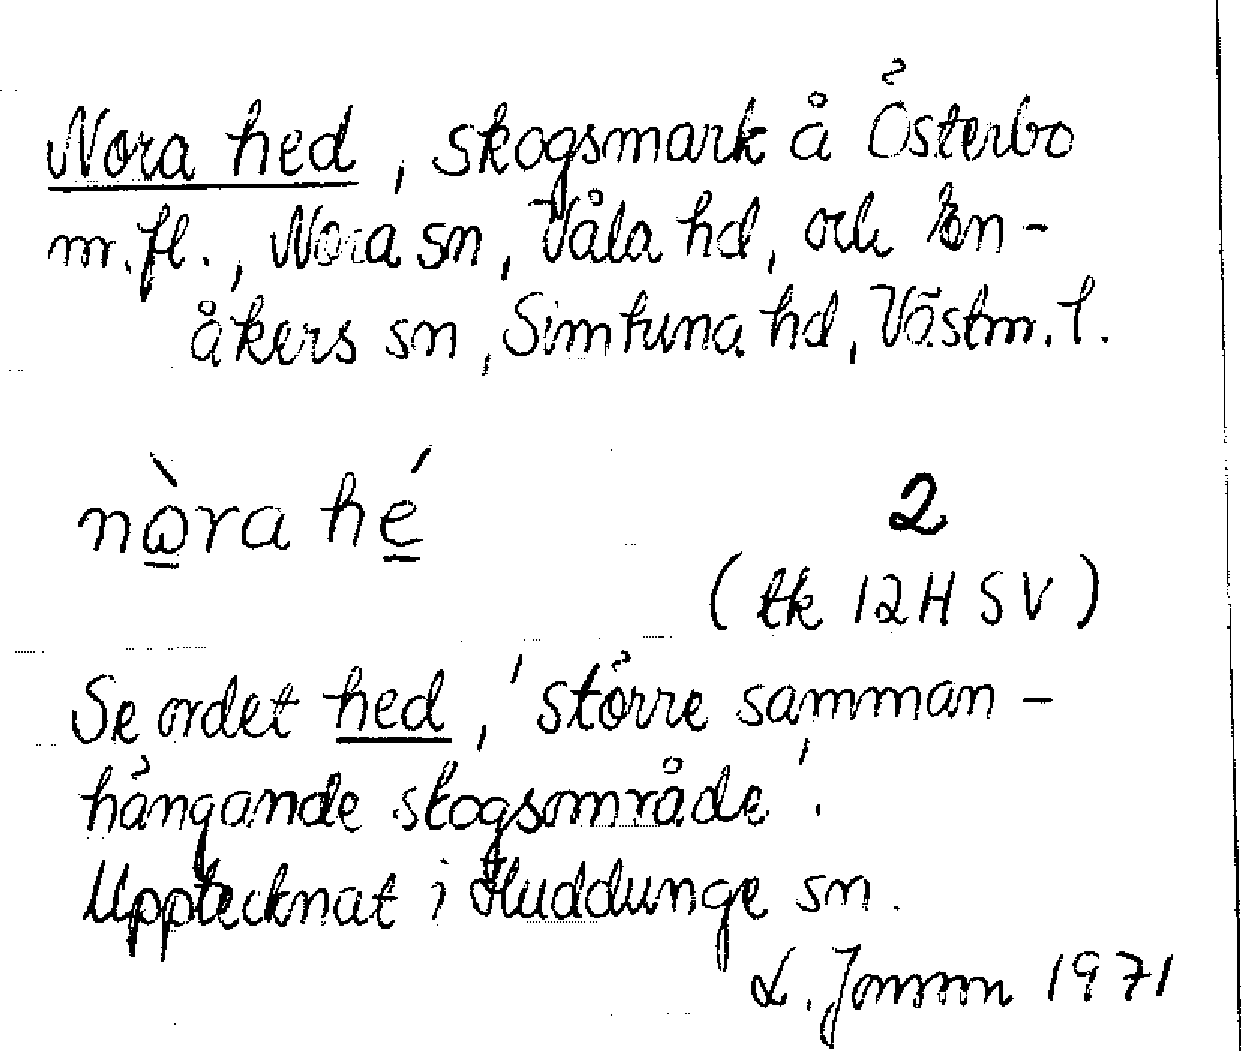 Nora hed, skogsmark å Österbo
m.fl., Nora sn, Våla hd, och En-
åkers sn, Simtuna hd, Västm. l.
nò̱ra hé̱
2
(tk 12H SV)
Se ordet hed, 'större samman-
hängande skogsområde'.
Upptecknat i Huddunge sn.
L. Jonson 1971